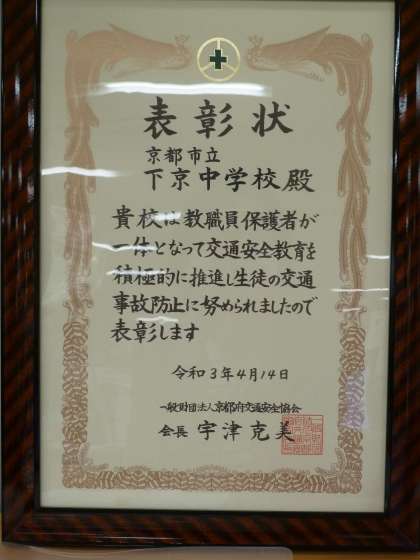 表彰状
京都市立
下京中学校殿
貴校は教職員保護者が
一体となって交通安全教育を
積極的に推進し生徒の交通
事故防止に努められましたので
表彰します
令和3年4月14日
一般財団法人京都府交通安全協会
会長 宇津克美